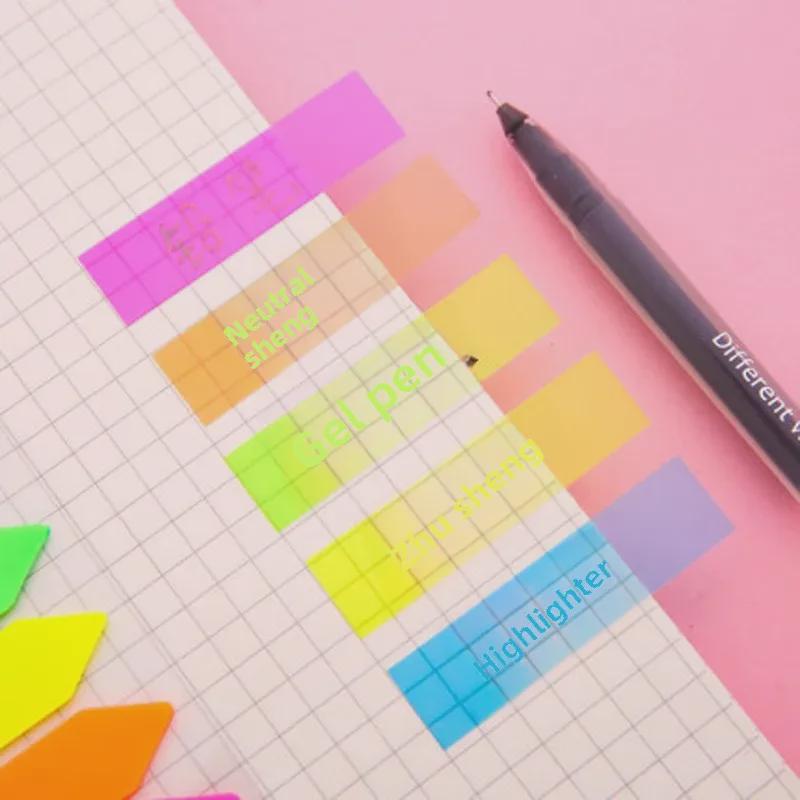 Neutral
sheng
Gel pen
Zhu sheng
Highlighter
Different